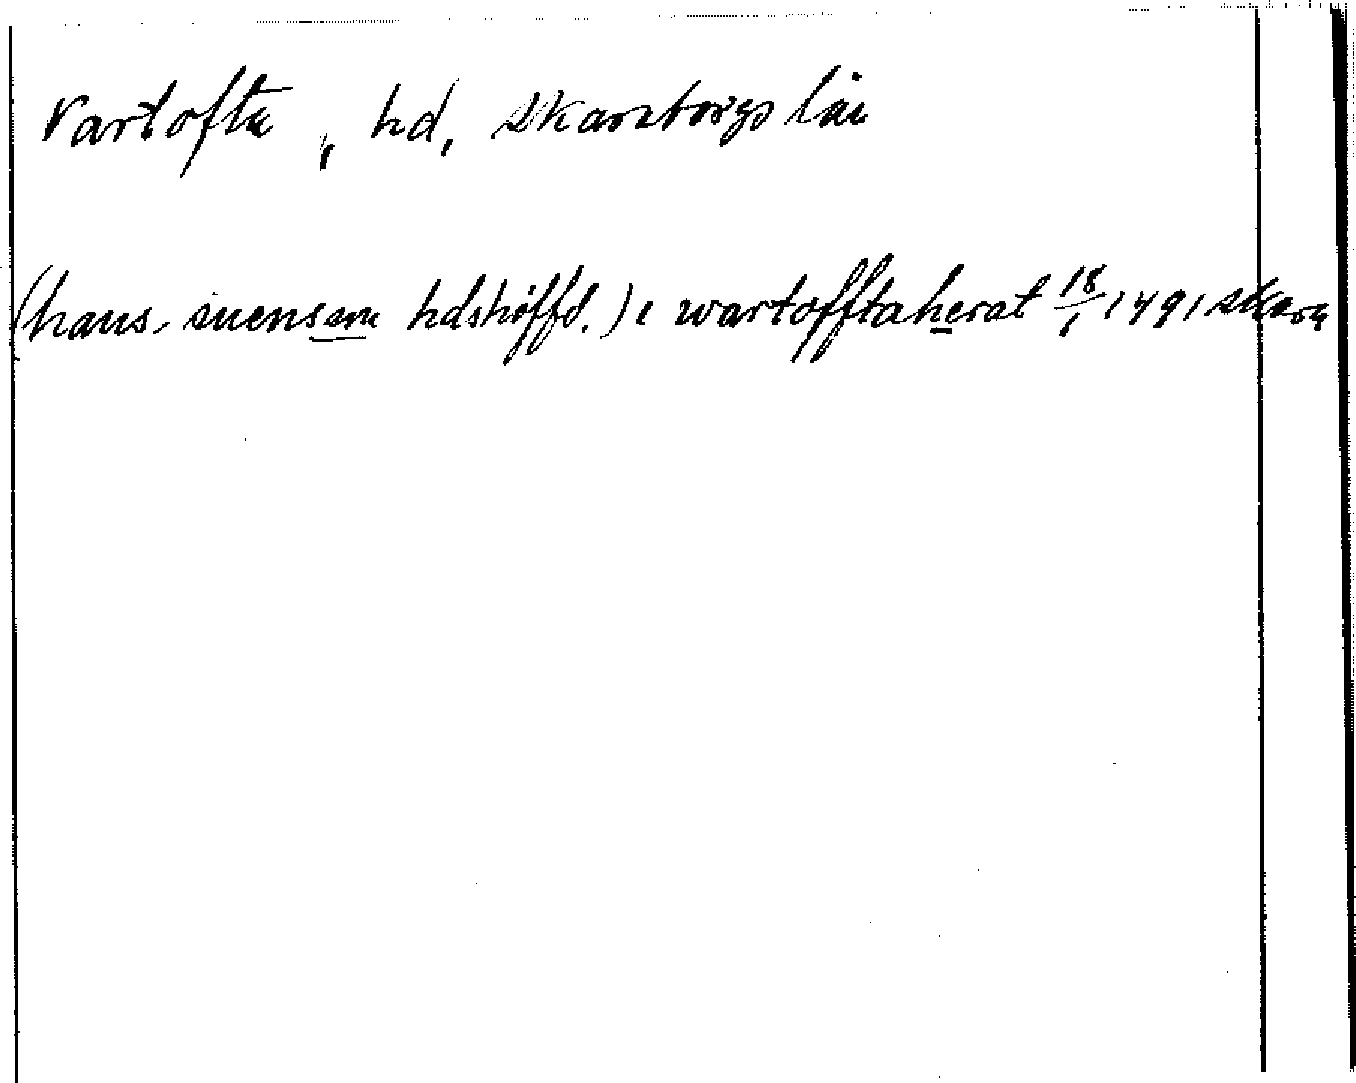 Vartofta, hd, Skaraborgs län
(hans suensson hdshöffd.) i wartofftaherat 18/1 1491 Skara